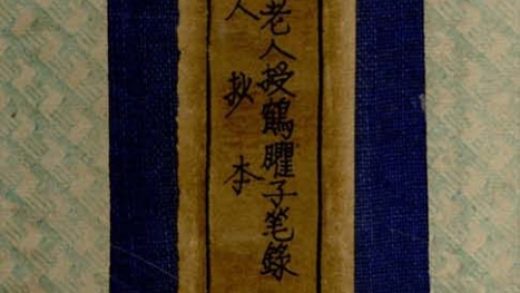 老人授鶴臞子笔錄
人抄本